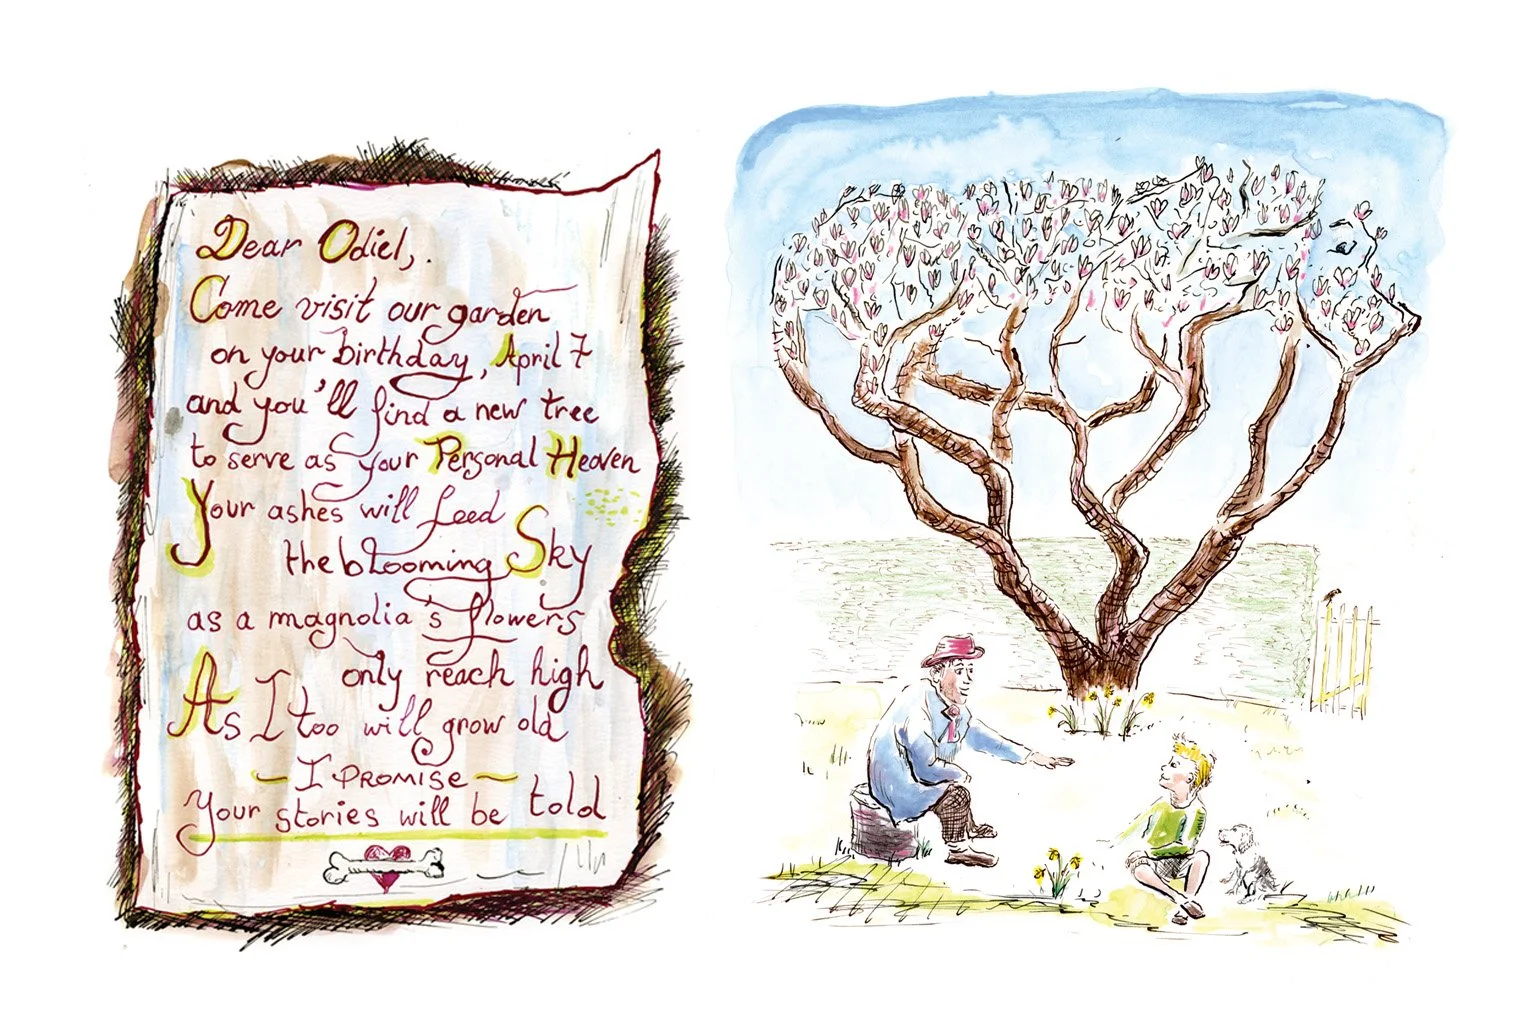 Dear Odiel,.
Come visit our garden
on your birthday, April 7
and you'll find a new tree
to serve as your Personal Heaven
Your ashes will feed
the blooming Sky
as a magnolia's flowers
only reach high
As I too will grow old
~ I PROMISE ~
Your stories will be told